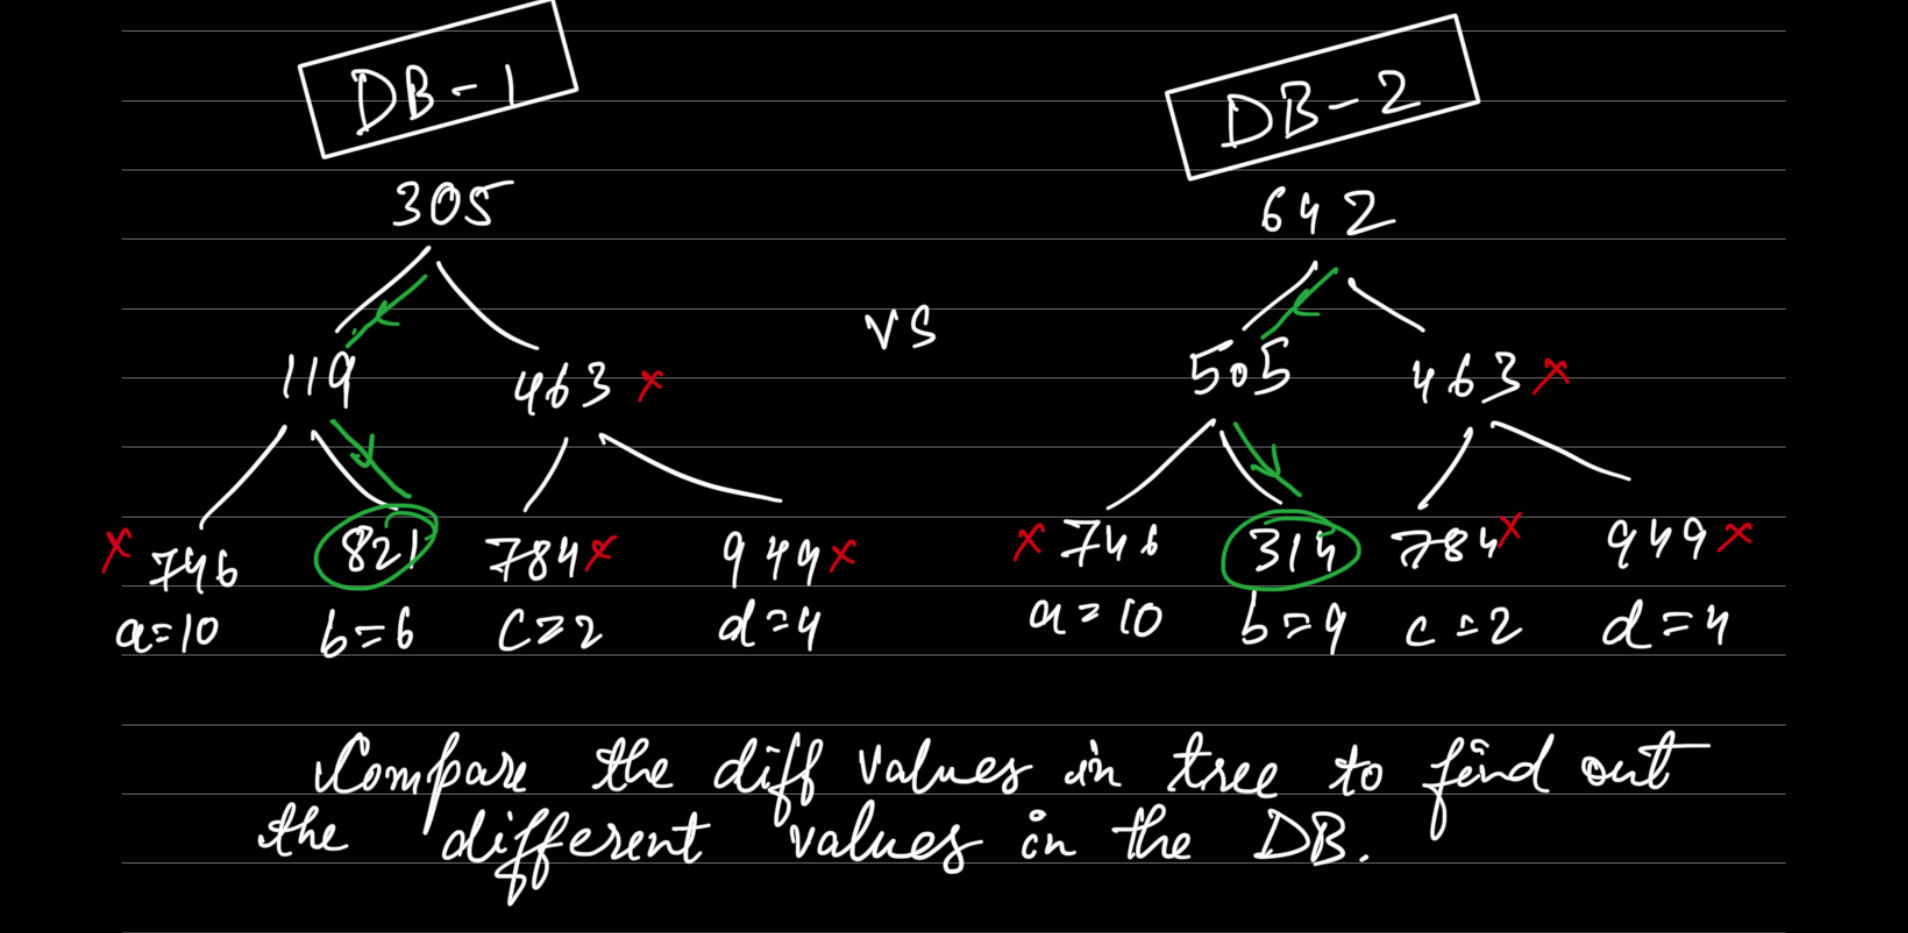 DB-1 DB-2
305 642
VS
119 463 x 505 463 x
x 746 821 784 x 949 x x 746 314 784 x 949 x
a=10 b=6 c=2 d=4 a=10 b=9 c=2 d=4
Compare the diff values in tree to find out
the different values in the DB.